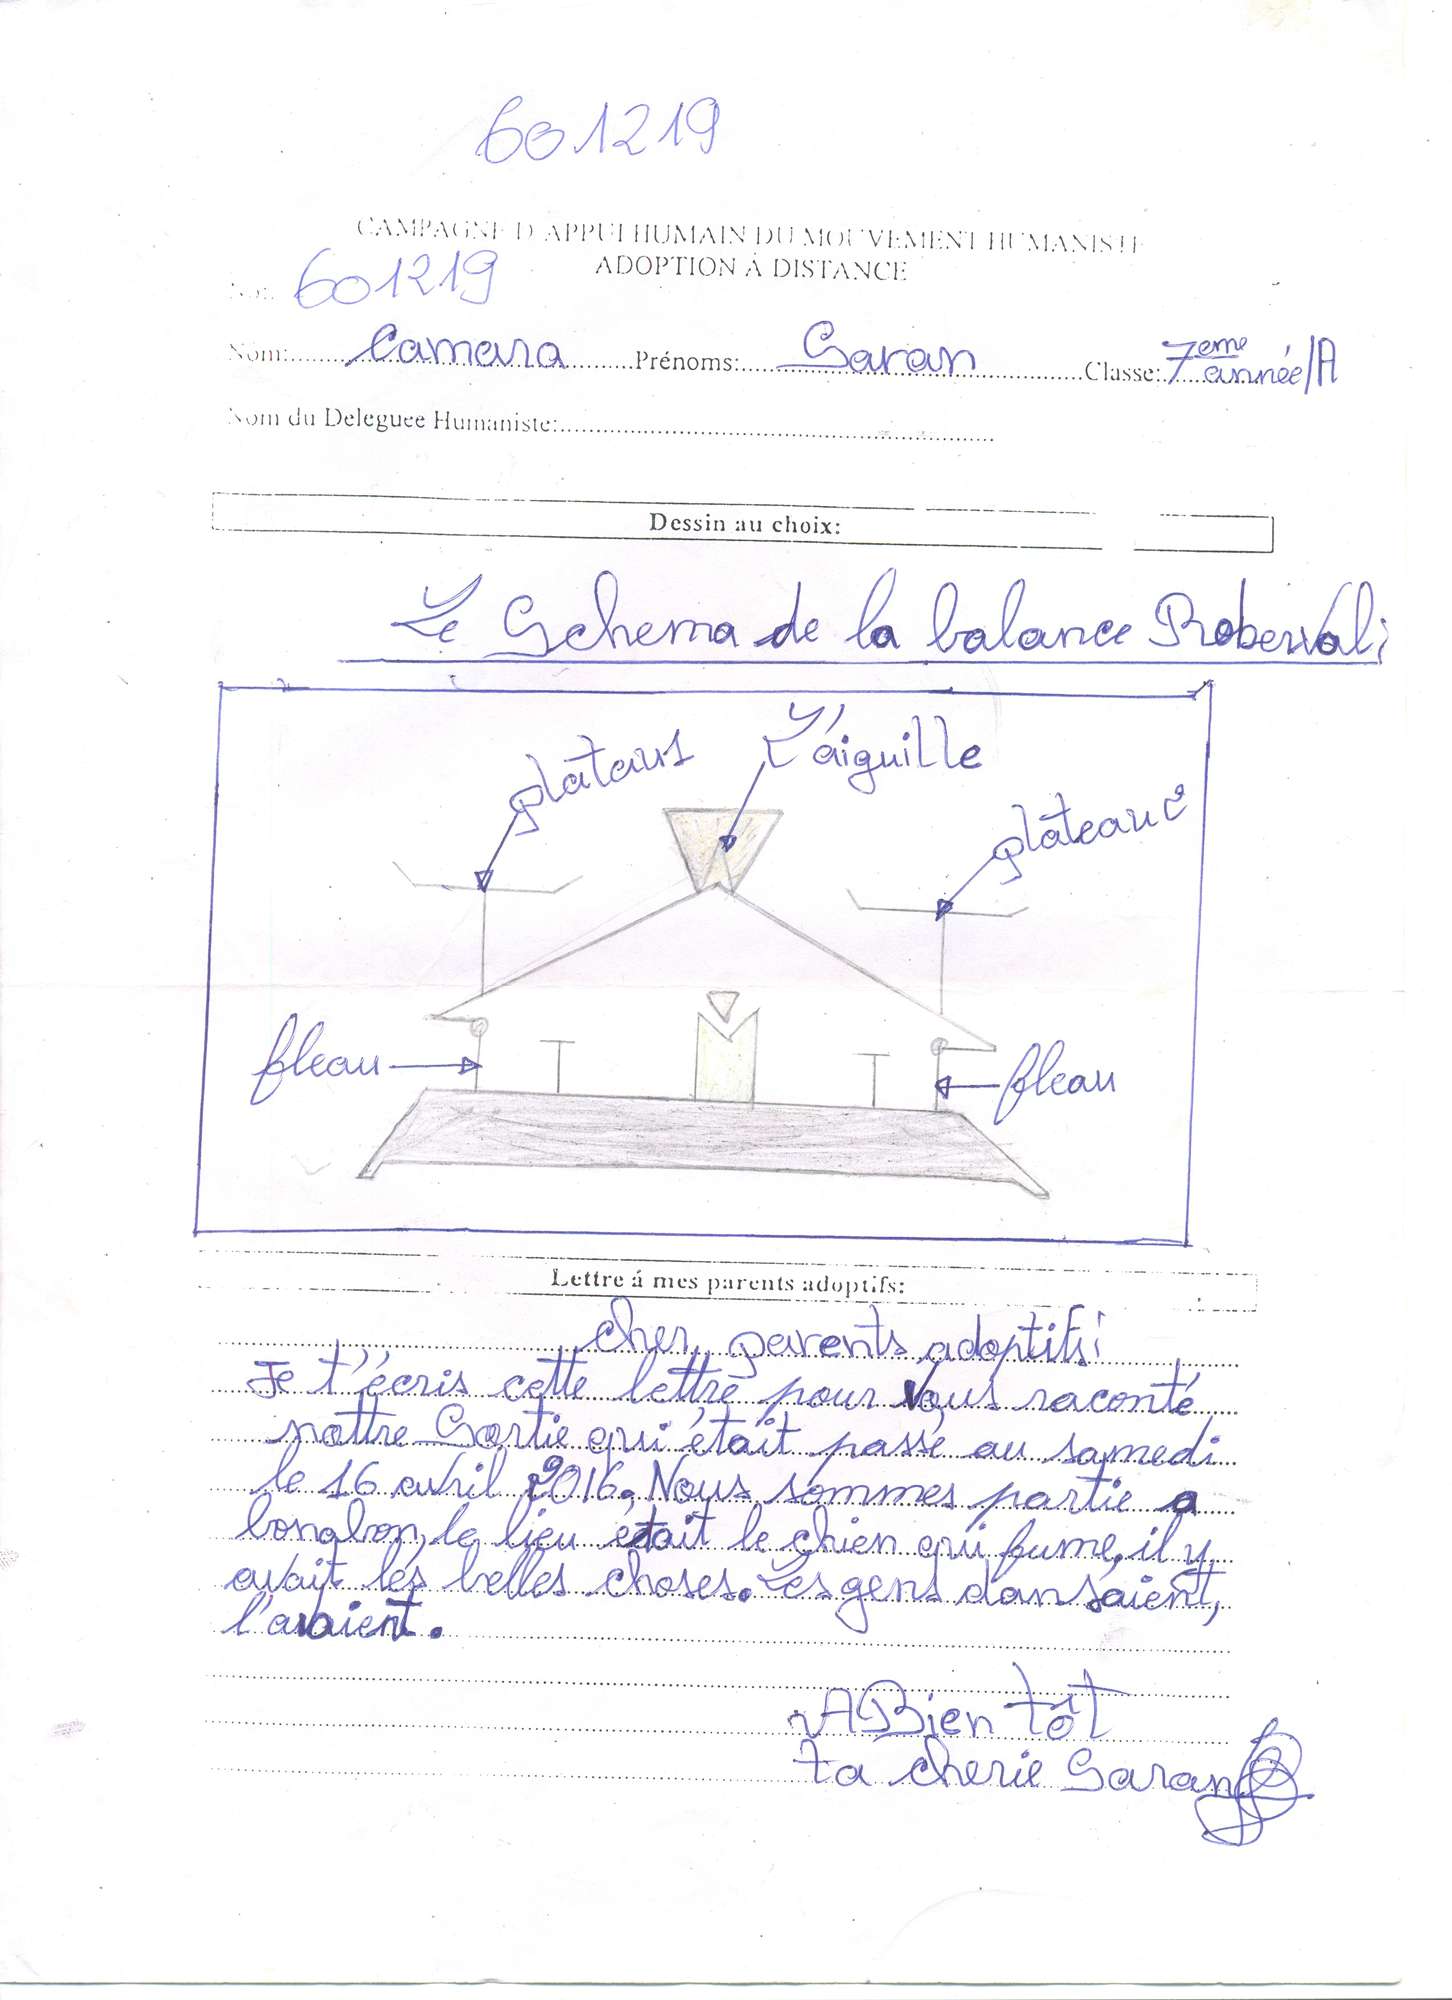 601219
CAMPAGNE D'APPUI HUMAIN DU MOUVEMENT HUMANISTE
ADOPTION Á DISTANCE
601219
Nom: Camara Prénoms: Saran Classe: 7eme année/A
Nom du Deleguee Humaniste:
Dessin au choix:
Le Schema de la balance Roberval;
plataus L'aiguille
plateau 2
fleau fleau
Lettre á mes parents adoptifs:
cher parents adoptifs;
Je t'écris cette lettre pour vous raconté
nottre Sortie qui était passé au samedi
le 16 avril 2016. Nous sommes partie a
le lieu était le chien qui fume, il y
avait les belles choses. Les gens dansaient,
A Bien tôt
ta cherie Saran